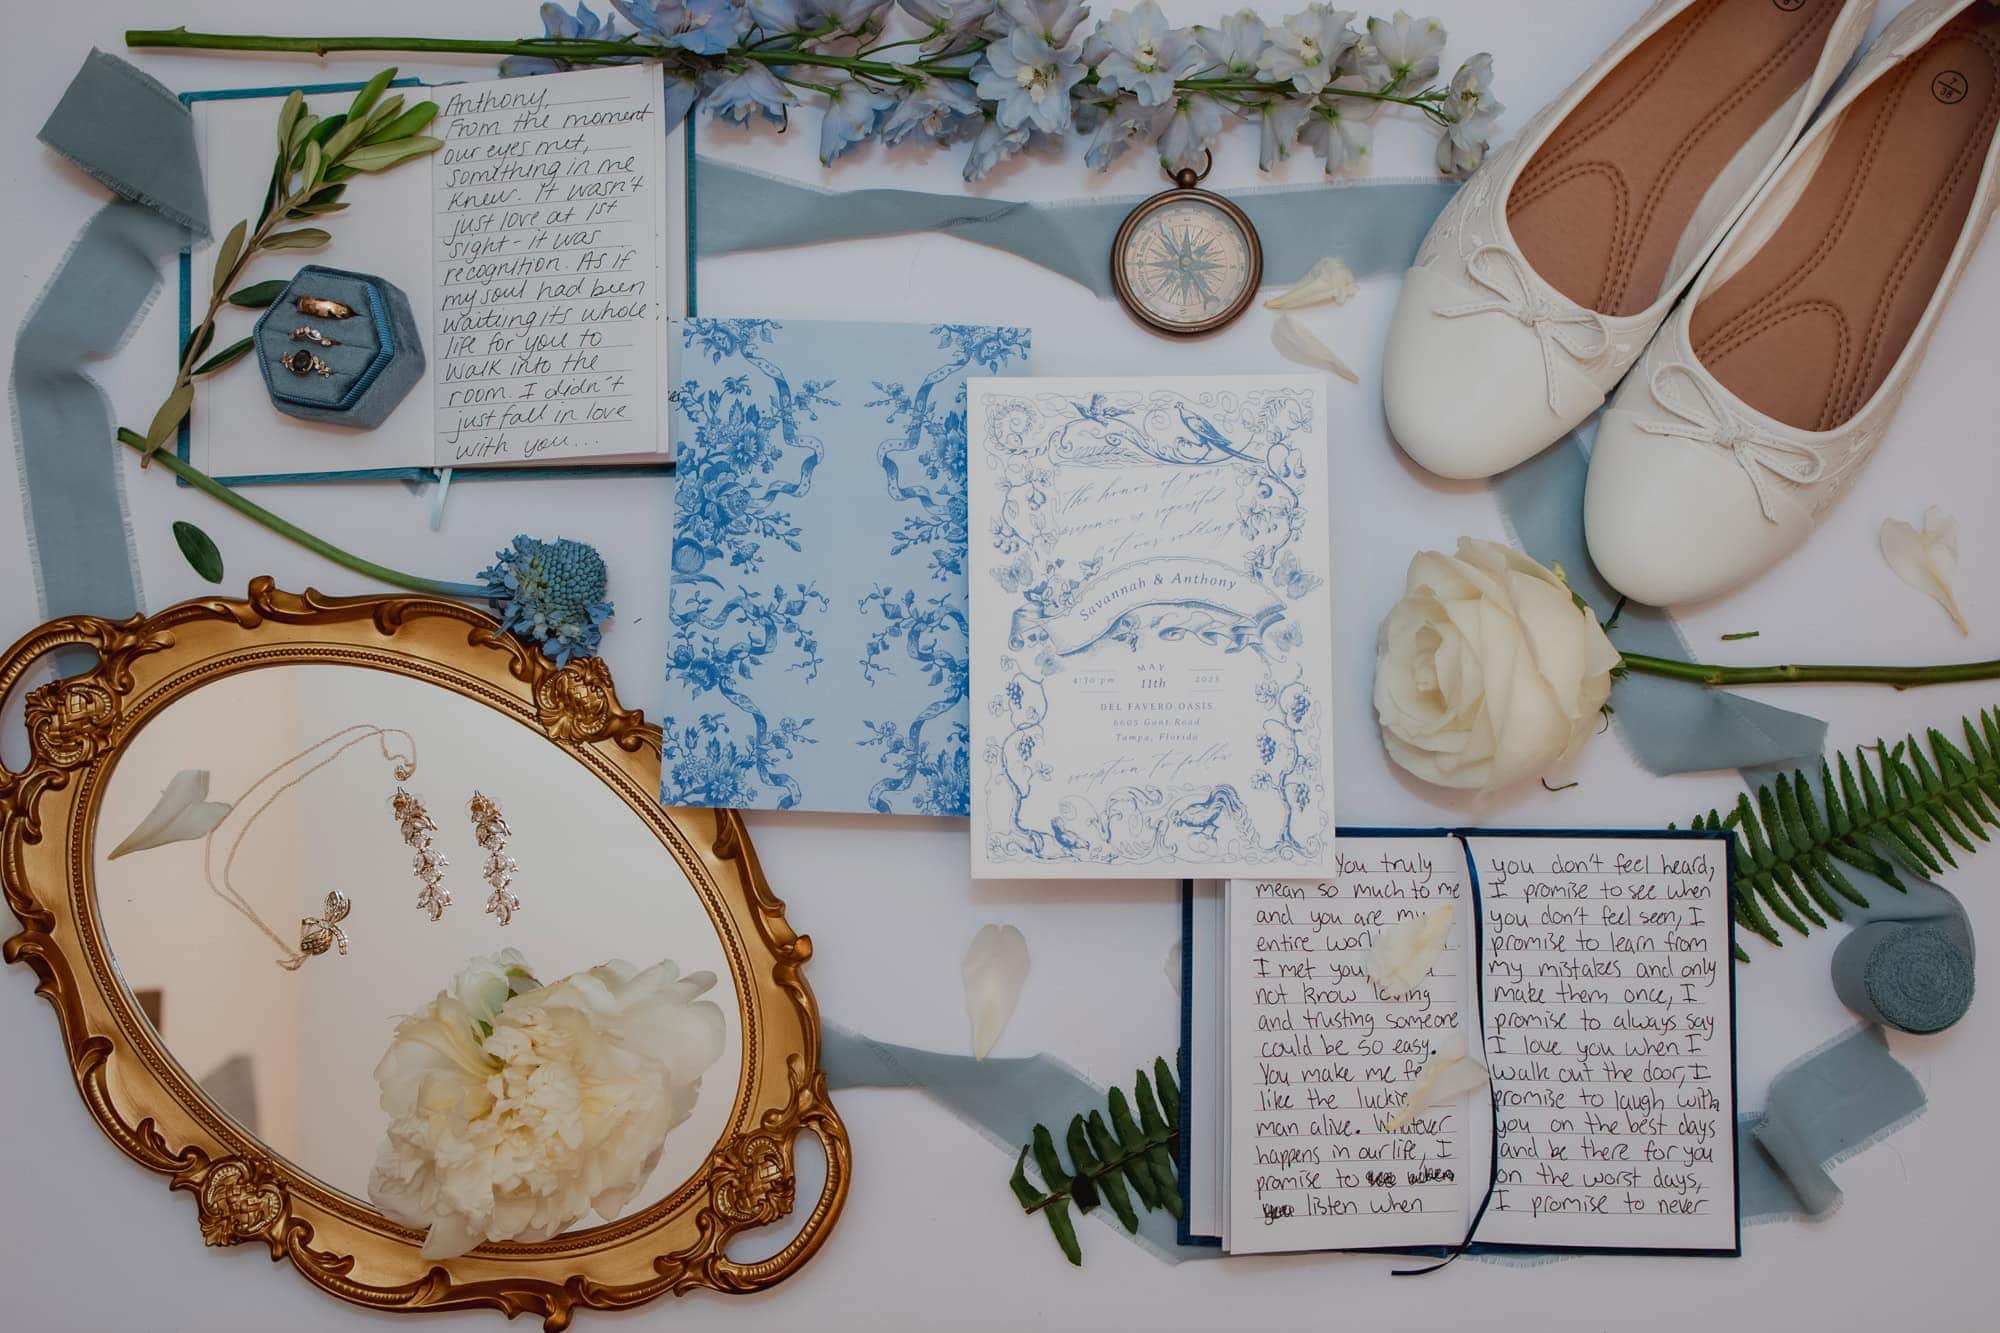 Anthony,
From the moment
our eyes met,
something in me
knew. It wasn't
just love at 1st
sight - it was
recognition. As if
my soul had been
waiting its whole
life for you to
walk into the
room. I didn't
just fall in love
with you...
7
38
the honor of your
presence is requested
at our wedding
Savannah & Anthony
MAY
4:30 pm 11th 2025
DEL FAVERO OASIS
6605 Gant Road
Tampa, Florida
reception to follow
You truly
mean so much to me
and you are my
entire
I met you,
not know loving
and trusting someone
could be so easy.
You make me
like the
man alive. Whatever
happens in our life, I
promise to
listen when
you don't feel heard,
I promise to see when
you don't feel seen, I
promise to learn from
my mistakes and only
make them once, I
promise to always say
I love you when I
walk out the door, I
promise to laugh with
you on the best days
and be there for you
on the worst days,
I promise to never